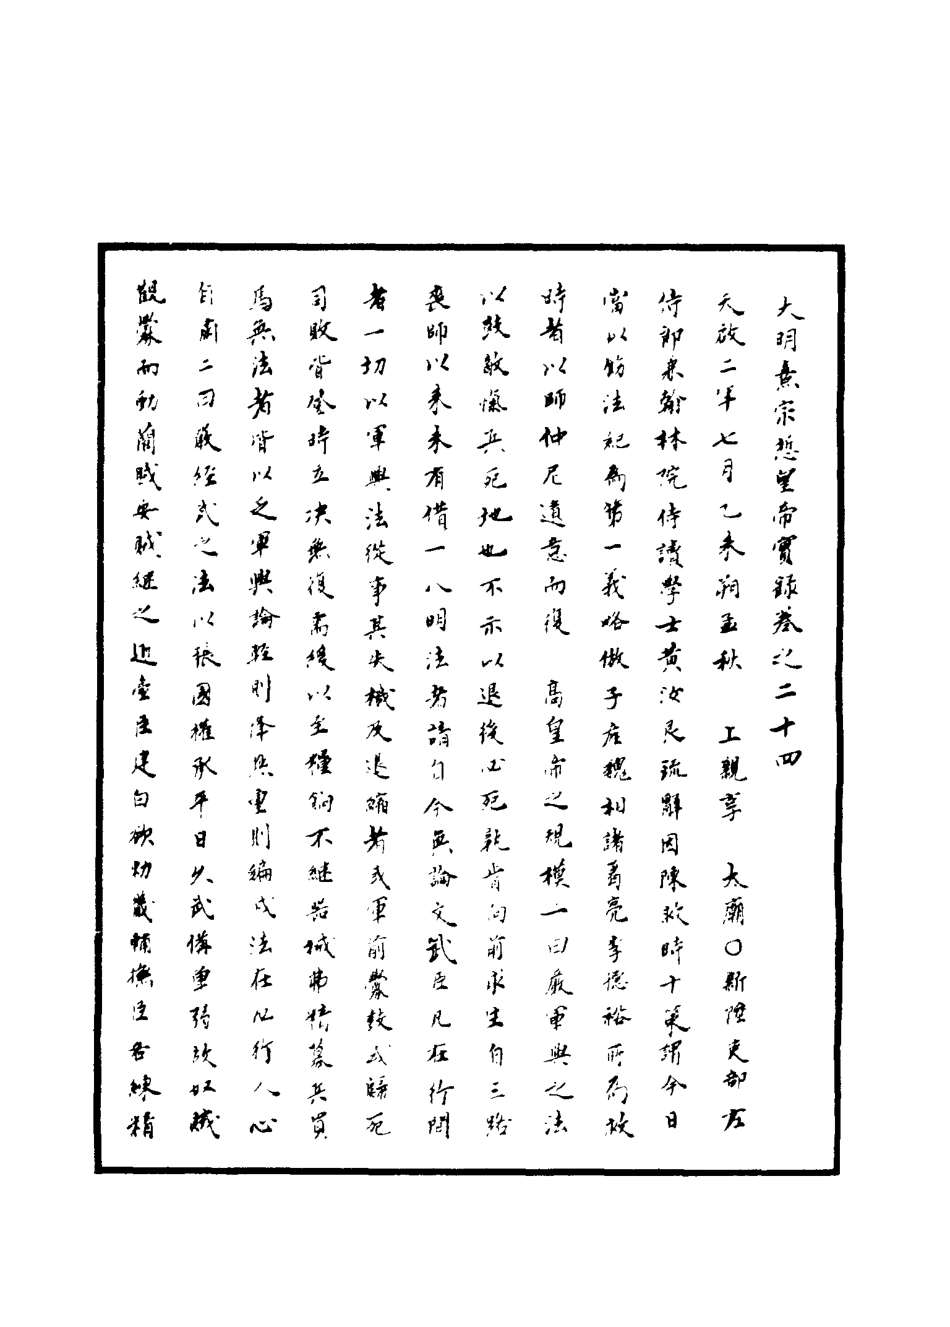 大明熹宗悊皇帝實錄卷之二十四
天啟二年七月乙未朔孟秋　上親享　太廟○新陞吏部左
侍郎兼翰林院侍讀學士黃汝良疏辭因陳救時十策謂今日
當以飭法紀為第一義略倣子產魏相諸葛亮李德裕所為救
時者以師仲尼遺意而復　高皇帝之規模一曰嚴軍興之法
以鼓敵愾兵死地也不示以退後必死孰肯向前求生自三路
喪師以來未有借一人明法者請自今無論文武臣凡在行間
者一切以軍興法從事其失機及退縮者或軍前釁鼓或歸死
司敗皆登時立決無復需緩以至糧餉不繼器械弗精募兵買
馬無法者皆以乏軍興論輕則降與重則編戍法在必行人心
自肅二曰嚴經武之法以張國權承平日久武備單弱故奴賊
覬釁而動藺賊安賊繼之近臺臣建白欲幼畿輔撫臣各練精